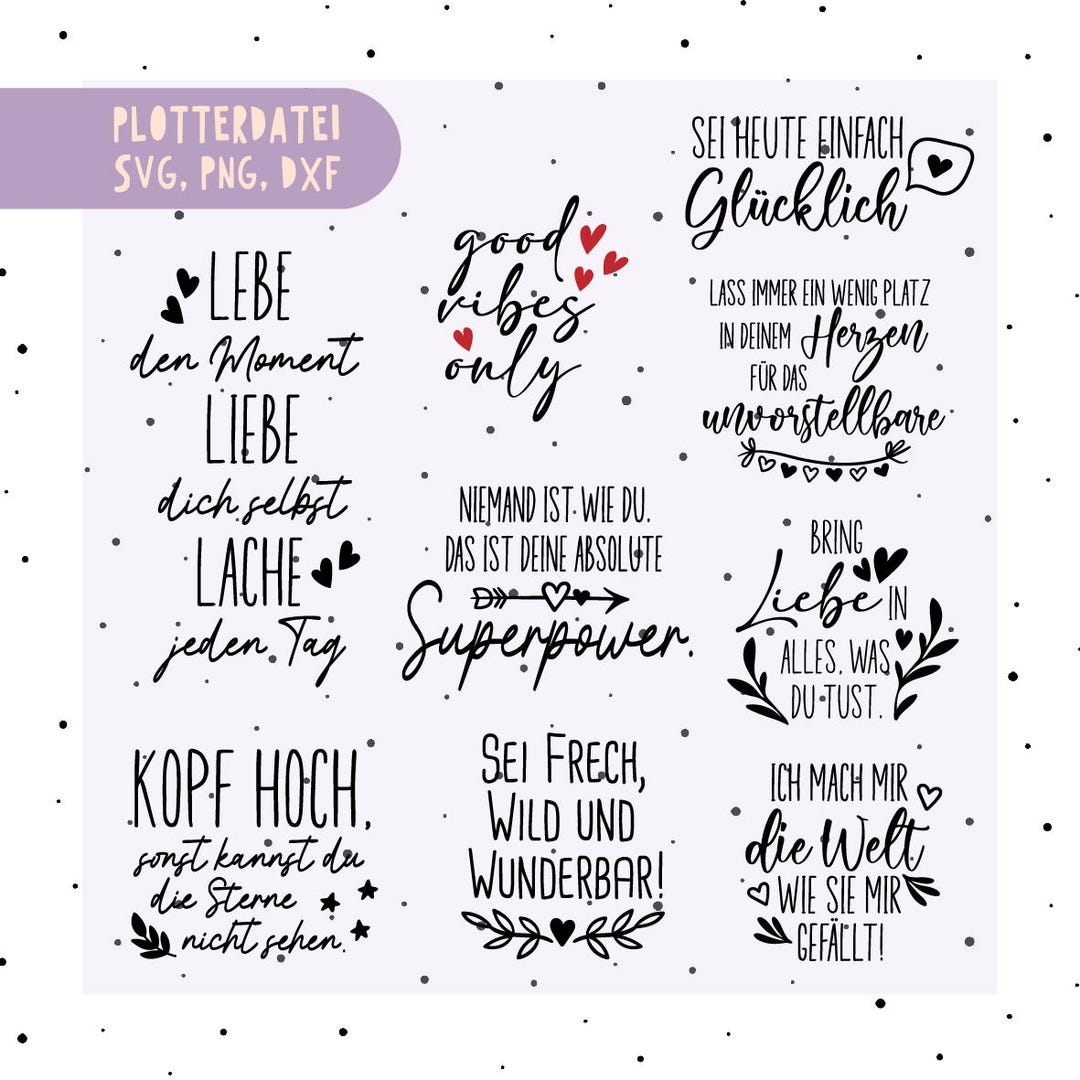 PLOTTERDATEI
SVG, PNG, DXF
LEBE
den Moment
LIEBE
dich selbst
LACHE
jeden Tag
KOPF HOCH,
sonst kannst du
die Sterne
nicht sehen.
good
vibes
only
NIEMAND IST WIE DU.
DAS IST DEINE ABSOLUTE
Superpower.
SEI FRECH,
WILD UND
WUNDERBAR!
SEI HEUTE EINFACH
Glücklich
LASS IMMER EIN WENIG PLATZ
IN DEINEM Herzen
FÜR DAS
unvorstellbare
BRING
Liebe IN
ALLES, WAS
DU TUST.
ICH MACH MIR
die Welt
WIE SIE MIR
GEFÄLLT!